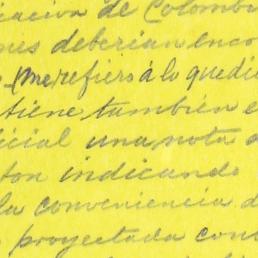 icación de Colombi
nes deberían enco
(me) refiero á lo que dic
tiene también e
icial una nota a
ton indicando
la conveniencia d
proyectada cons